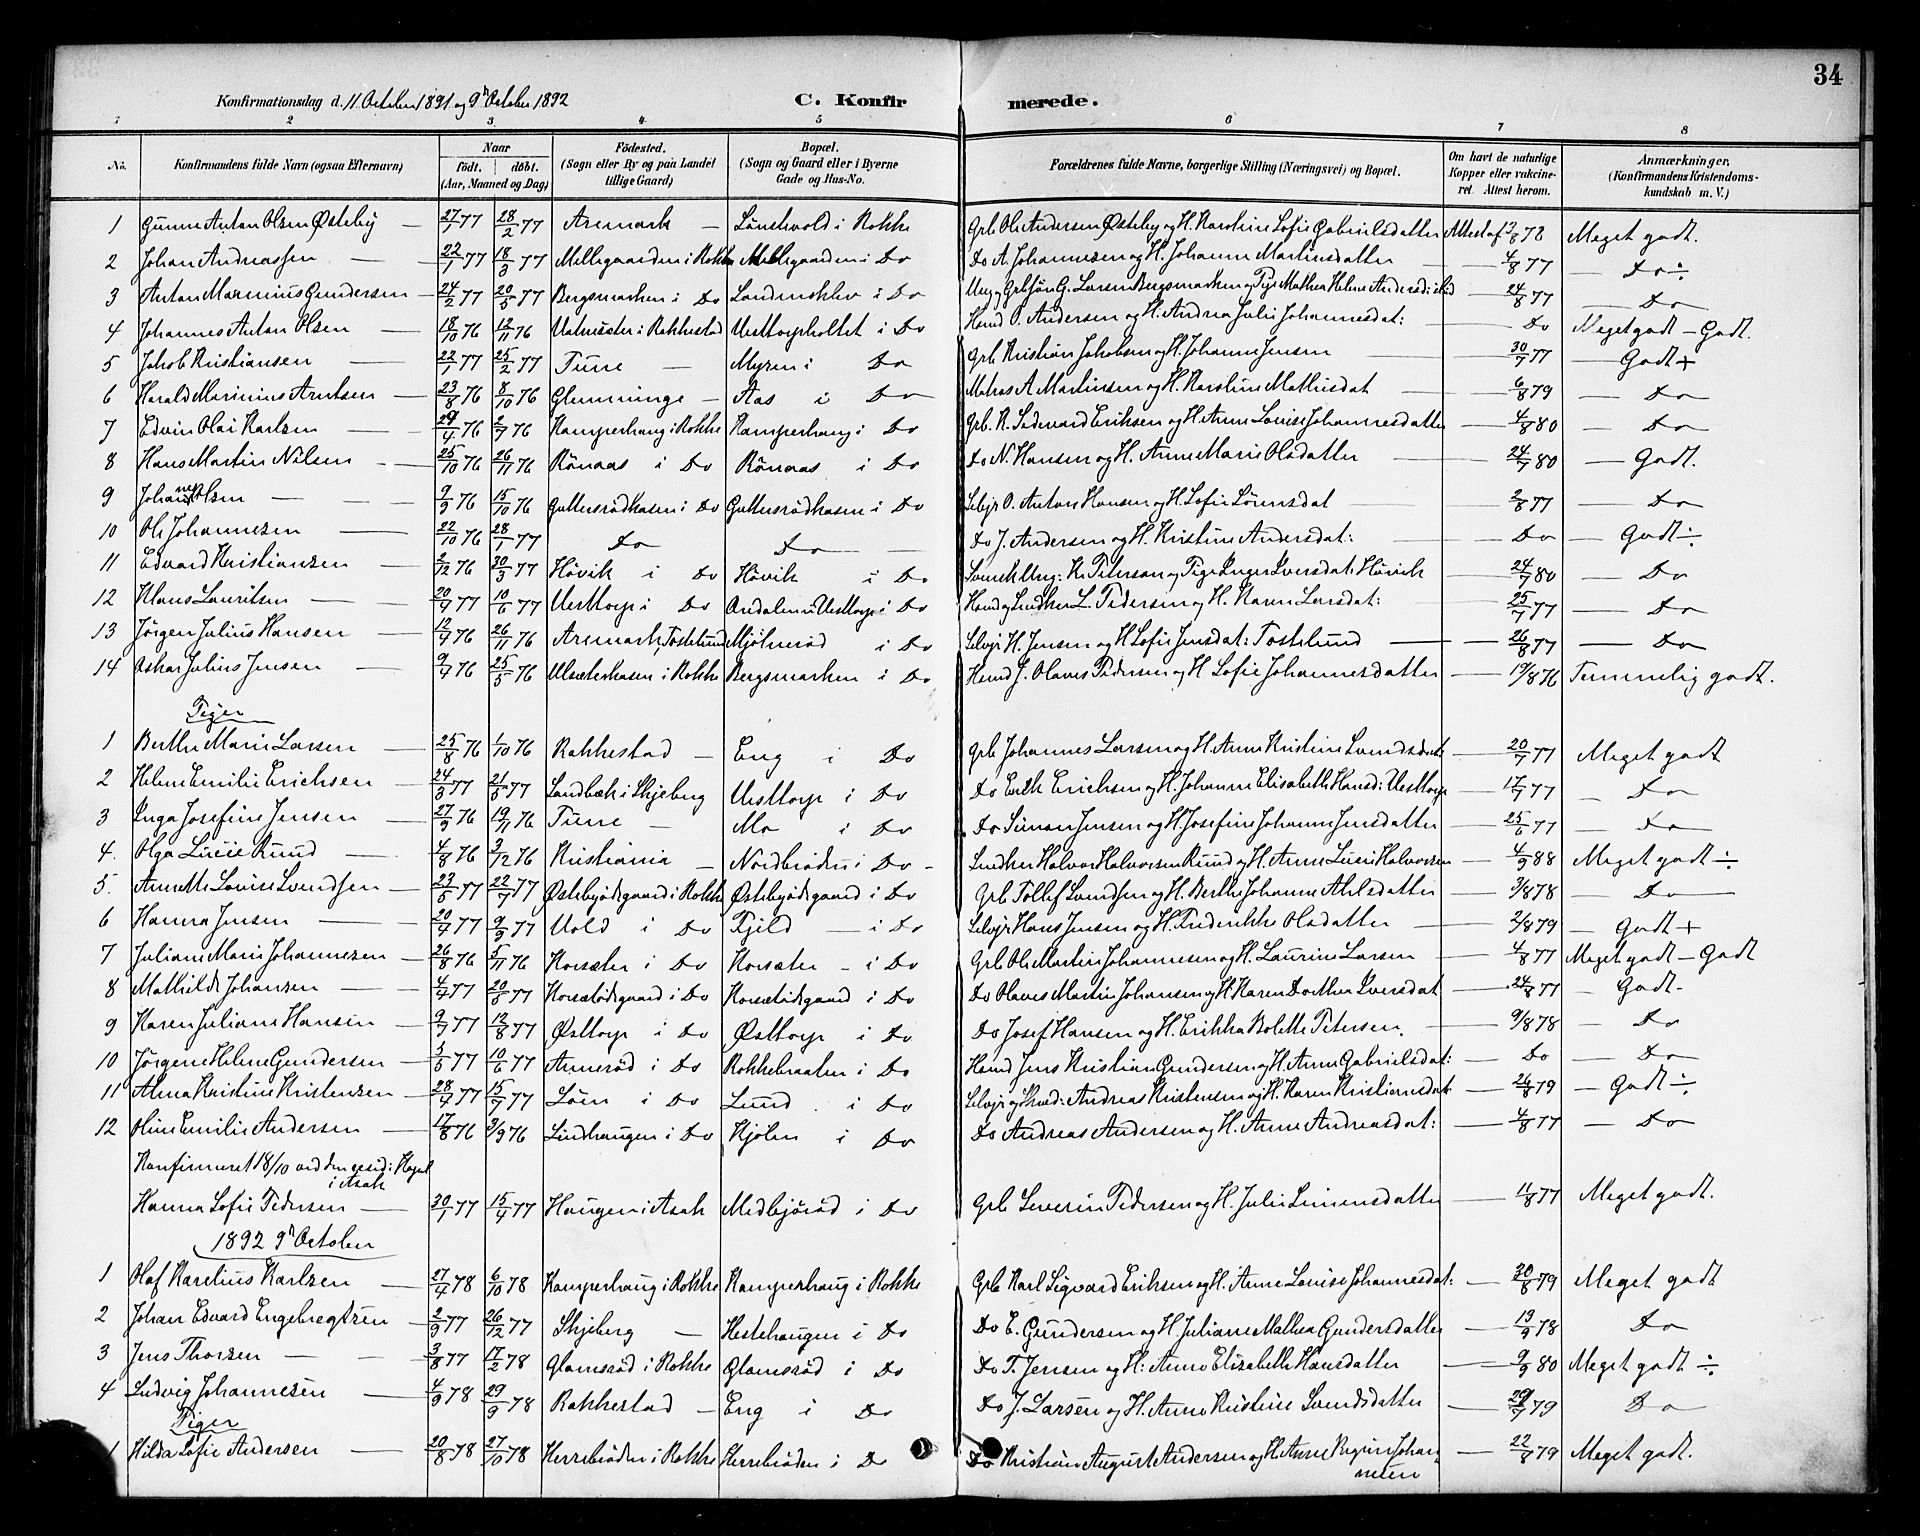 34
Konfirmationsdag d. 11 October 1891 og 9d October 1892 C. Konfirmerede.
1 2 3 4 5 6 7 8
No. Konfirmandens fulde Navn (ogsaa Efternavn) Naar født. døbt. (Aar, Maaned og Dag) Fødested. (Sogn eller By og paa Landet tillige Gaard) Bopæl. (Sogn og Gaard eller i Byerne Gade og Hus-No. Forældrenes fulde Navne, borgerlige Stilling (Næringsvei) og Bopæl. Om havt de naturlige Kopper eller vakcineret. Attest herom. Anmærkninger. (Konfirmandens Kristendomskundskab m. V.)
1 Gunne Anton Olsen Østeby — 27/1 77 28/2 77 Aremark — Lönskvold i Rokke Grb Ole Andersen Østeby og H. Karoline Sofie Gabrielsdatter Attest af 13/8 78 Meget godt.
2 Johan Andreassen — 22/1 77 18/3 77 Millegaarden i Rokke Millegaarden i Do Do A. Johannesen og H. Johanne Martinsdatter — 4/8 77 — Do ÷
3 Anton Marinius Gundersen — 24/2 77 20/5 77 Bergsmarken i Do Landinsklev i Do Ung. Grbsön G. Larsen Bergsmarken og Pige Mathea Helene Andersd: 24/8 77 — Do
4 Johannes Anton Olsen — 18/10 76 12/11 76 i Rakkestad Vesttorpholtet i Do Hmd O. Andersen og H. Andrea Julie Johannesdat: — Do Meget godt — Godt.
5 Jakob Kristiansen — 22/1 77 25/2 77 Tune — Myren i Do Grb Kristian Jakobsen og H. Johanne Jensen — 30/7 77 — Godt +
6 Harald Marinius Arntsen — 23/8 76 8/10 76 Glemminge — Aas i Do Matros A Martinsen og H. Karoline Mathisdat — 6/8 79 — Do
7 Edvin Olai Karlsen — 29/4 76 2/7 76 Kamperhaug i Rokke Kamperhaug i Do Grb. K. Sedevard Eriksen og H. Anne Lovise Johannesdatter — 4/8 80 — Do
8 Hans Martin Nilsen — 25/10 76 26/11 76 Rönaas i Do Rönaas i Do Do N. Hansen og H. Anne Marie Olsdatter — 24/7 80 — Godt.
9 Johannes Olsen — 9/9 76 15/10 76 Guttersrödkasen i Do Guttersrödkasen i Do Selvejr O. Anton Hansen og H. Sofie Sörensdat — 2/8 77 — Do
10 Ole Johannesen — 22/10 76 28/1 77 Do Do — Do J. Andersen og H. Kristine Andersdat: — Do — Godt ÷
11 Edvard Kristiansen — 2/12 76 30/3 77 Hövik i Do Hövik i Do Svensk Ung: K. Peterson og Pige Inger Iversdat: Hövik — 24/7 80 — Do
12 Klaus Lauritsen — 20/4 77 10/6 77 Vesttorp i Do Ordalen u Vesttorp i Do Hmd og Snedker L. Pedersen og H. Karen Larsdat: 25/7 77 — Do
13 Jörgen Julius Hansen — 12/4 76 26/11 76 Aremark, Tostelund Mjölneröd i Do Selvejr H. Jensen og H Sofie Jensdat: Tostelund — 26/8 77 — Do
14 Oskar Julius Jensen — 9/4 76 25/5 76 Ulsæterkasen i Rokke Bergsmarken i Do Hmd J. Olaves Pedersen og H Sofie Johannesdatter — 19/8 76 Temmelig godt.
Piger
1 Berthe Marie Larsen — 25/8 76 1/10 76 Rakkestad — Eng i Do Grb Johannes Larsen og H. Anne Kristine Svendsdat — 20/7 77 Meget godt
2 Helene Emilie Erichsen — 24/3 77 21/5 77 Sandbæk i Skjeberg Vesttorp i Do Do Erik Erichsen og H. Johanne Elisabeth Hansd: Vesttorp — 17/7 77 — Do
3 Inga Josefine Jensen — 27/9 76 19/11 76 Tune — Mo i Do Do Simon Jensen og H. Josefine Johanne Jensdatter — 25/6 77 — Do
4. Olga Lucie Ruud — 4/8 76 3/12 76 Kristiania — Nordbröden i Do — Snedker Halvor Halvorsen Ruud og H. Anne Lucie Halvorsen — 4/9 88 Meget godt ÷
5. Annette Lovise Svendsen — 23/5 77 22/7 77 Østebyödegaard i Rokke Østebyödegaard i Do Grb Tollef Svendsen og H. Berthe Johanne Axelsdatter — 3/8 78 — Do —
6 Hanna Jensen — 20/4 77 9/9 77 Vold i Do Fjeld — i Do Selvejr Hans Jensen og H. Frederikke Olsdatter — 2/8 79 — Godt +
7 Juliane Marie Johannesen — 26/8 76 5/11 76 Korsæter i Do Korsæter — i Do Grb Ole Martin Johannesen og H. Laurine Larsen — 4/8 77 Meget godt — Godt
8 Mathilde Johansen — 4/4 77 20/5 77 Korsetödegaard i Do Korsetödegaard i Do Do Olaves Martin Johansen og H. Karen Dorthea Iversdat — 24/8 77 — Godt.
9 Karen Juliane Hansen — 9/7 77 12/8 77 Østtorp i Do Østtorp i Do Do Josef Hansen og H. Erikka Bolette Petersen. — 9/8 78 — Do
10 Jörgene Helene Gundersen — 3/5 77 10/6 77 Anneröd i Do Rokkebraaten i Do Hmd Jens Kristian Gundersen og H. Anne Gabrielsdat: — Do — Do
11 Anna Kristine Kristensen — 28/4 77 15/7 77 Löen i Do Lund i Do Selvejr og Skræd: Andreas Kristensen og H. Karen Kristiansdat — 26/8 79 — Godt ÷
12 Oline Emilie Andersen — 17/8 76 3/9 76 Lindhaugen i Do Kjölen i Do Do Andreas Andersen og H. Anne Andreasdat: — 4/8 77 — Do
Konfirmeret 18/10 ved den resid: Kapel i Asak
Hanna Sofie Pedersen — 30/1 77 15/4 77 Haugen i Asak Medbjöröd i Do Grb Severin Pedersen og H. Julie Simensdatter — 11/8 77 Meget godt.
1892 9d October
1 Olaf Karelius Karlsen — 27/4 78 6/10 78 Kamperhaug i Rokke Kamperhaug i Rokke Grb Karl Sigvard Eriksen og H. Anne Lovise Johannesdat: — 30/8 79 Meget godt
2 Johan Edvard Engebregtsen — 2/9 77 26/12 77 Skjeberg — Hestehaugen i Do Do E. Gundersen og H. Juliane Mathea Gundersdatter — 13/9 78 Do
3 Jens Thorsen — 3/8 77 17/2 78 Glamsröd i Rokke Glamsröd i Do Do T. Jensen og H: Anne Elisabeth Hansdatter — 9/9 80 Meget godt ÷
4 Ludvig Johannesen — 4/9 78 29/9 78 Rakkestad — Eng i Do Do J. Larsen og H. Anne Kristine Svendsdatter — 29/7 79 Do
Piger
1 Hilda Sofie Andersen — 20/8 78 27/10 78 Herrebröden i Rokke Herrebröden i Do Do Kristian August Andersen og H. Anne Regine Johannesen — 22/8 79 Meget godt.